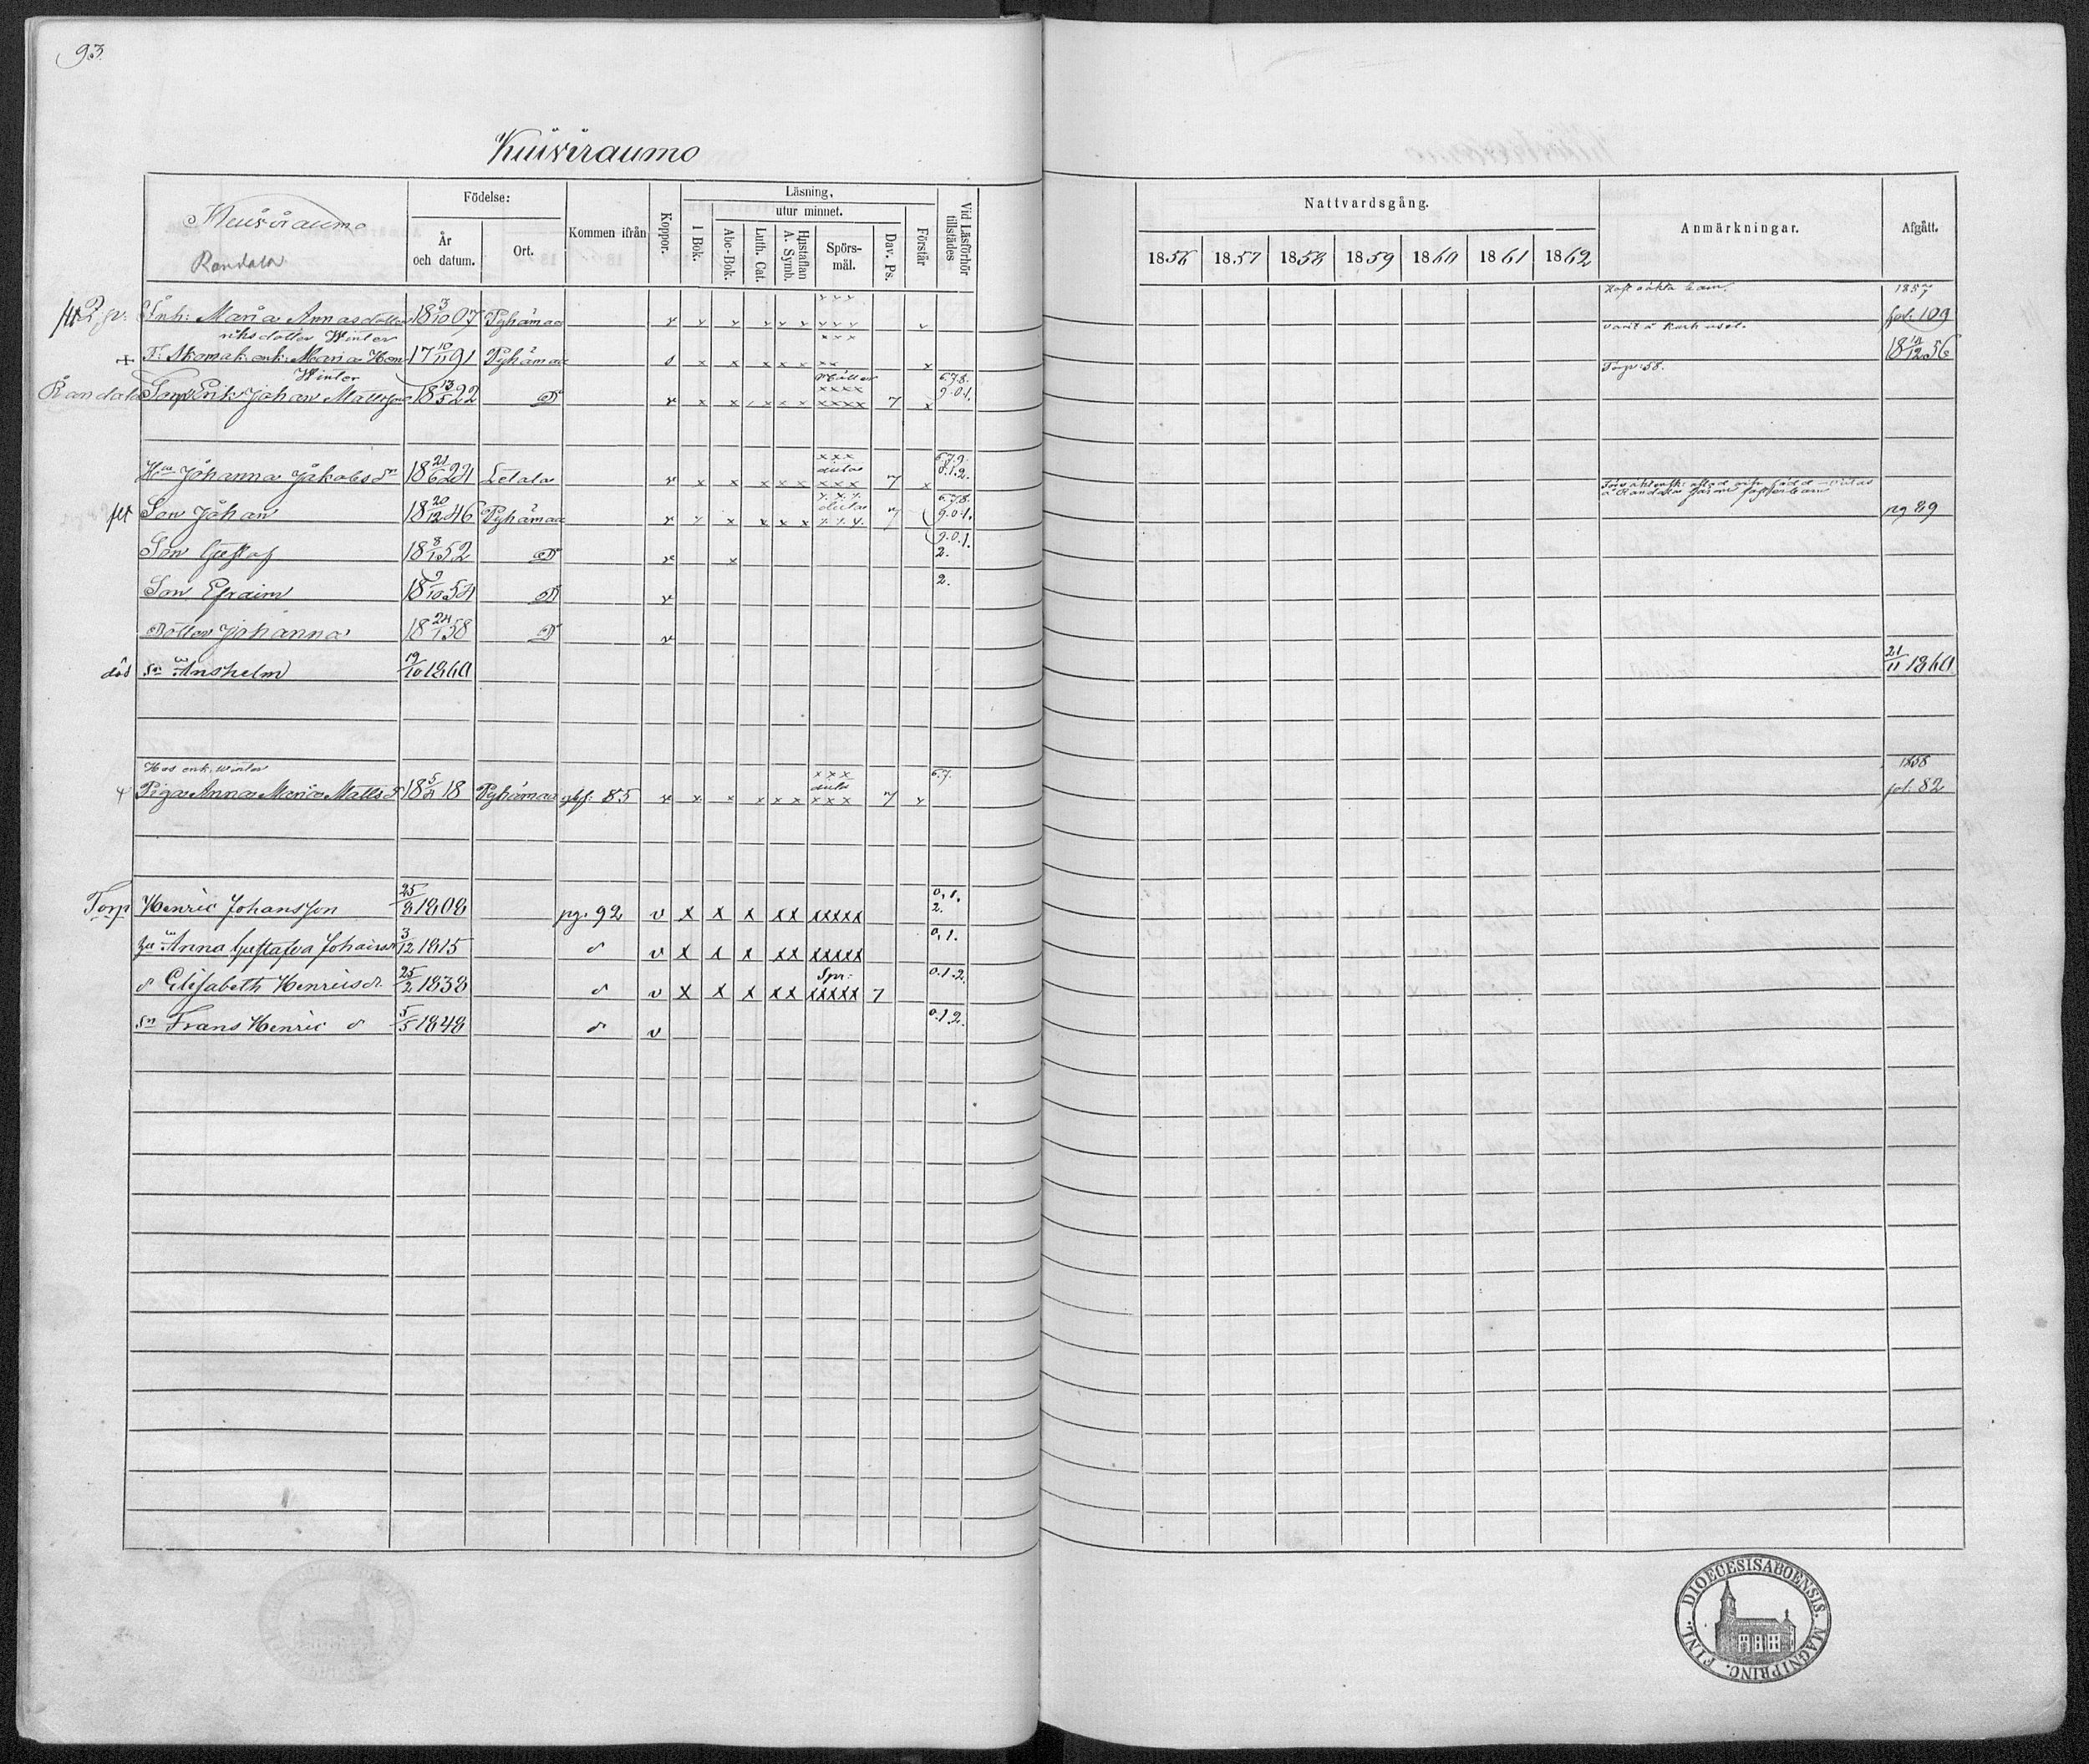 93.
Kuiviraumo
Födelse:
Läsning,
utur minnet.
År och datum.
Ort.
Kommen ifrån
Koppor.
I Bok.
Abc-Bok.
Luth. Cat.
Hustaflan A. Symb.
Spörs-mål.
Dav. Ps.
Förstår
Vid Läsförhör tillstädes
Nattvardsgång.
1856 1857 1858 1859 1860 1861 1862
Anmärkningar.
Afgått.
Randala
Inh: Maria Annasdotter 18 3/10 07 Pyhämaa
1857
fol: 109
riksdotter Winter
+ F. Skomak: enk: Maria Hen 17 10/11 91 Pyhämaa
18 12/12 56
Torp: 58.
Winter
Randala Torp Erik Johan Mattsson 18 13/5 22 Do 7
6.7.8.
9.0.1.
Hu Johanna Jakobsdr 18 21/6 24 Letala 7
6.7.9.
0.1.2.
flt Son Johan 18 20/12 46 Pyhämaa 7
6.7.8.
9.0.1.
pg 89
Son Gustaf 18 8/1 52 Do
9.0.1.
2.
Son Efraim 18 9/10 54 Do
2.
Dotter Johanna 18 24/1 58 Do
död Sn Anshelm 19/10 1860
21/11 1860
Hos enk. Winter
Piga Anna Maria Matts dr 18 5/4 18 Pyhämaa 85 7
6.7.
1858
fol: 82
Torp Henric Johansson 25/8 1808 pg. 92 v x x x xx xxxxx
0,1.
2.
Hu Anna Gustafva Johansdr 3/12 1815 v x x x xx xxxxx
0,1.
d Elisabeth Henricsdr. 25/2 1838 v x x x xx xxxxx 7
Spr:
0.1.2.
Sn Frans Henric 5/5 1848 v
0.1.2.
DIOECESIS ABOENSIS. MAGNI PRINC. FINL.